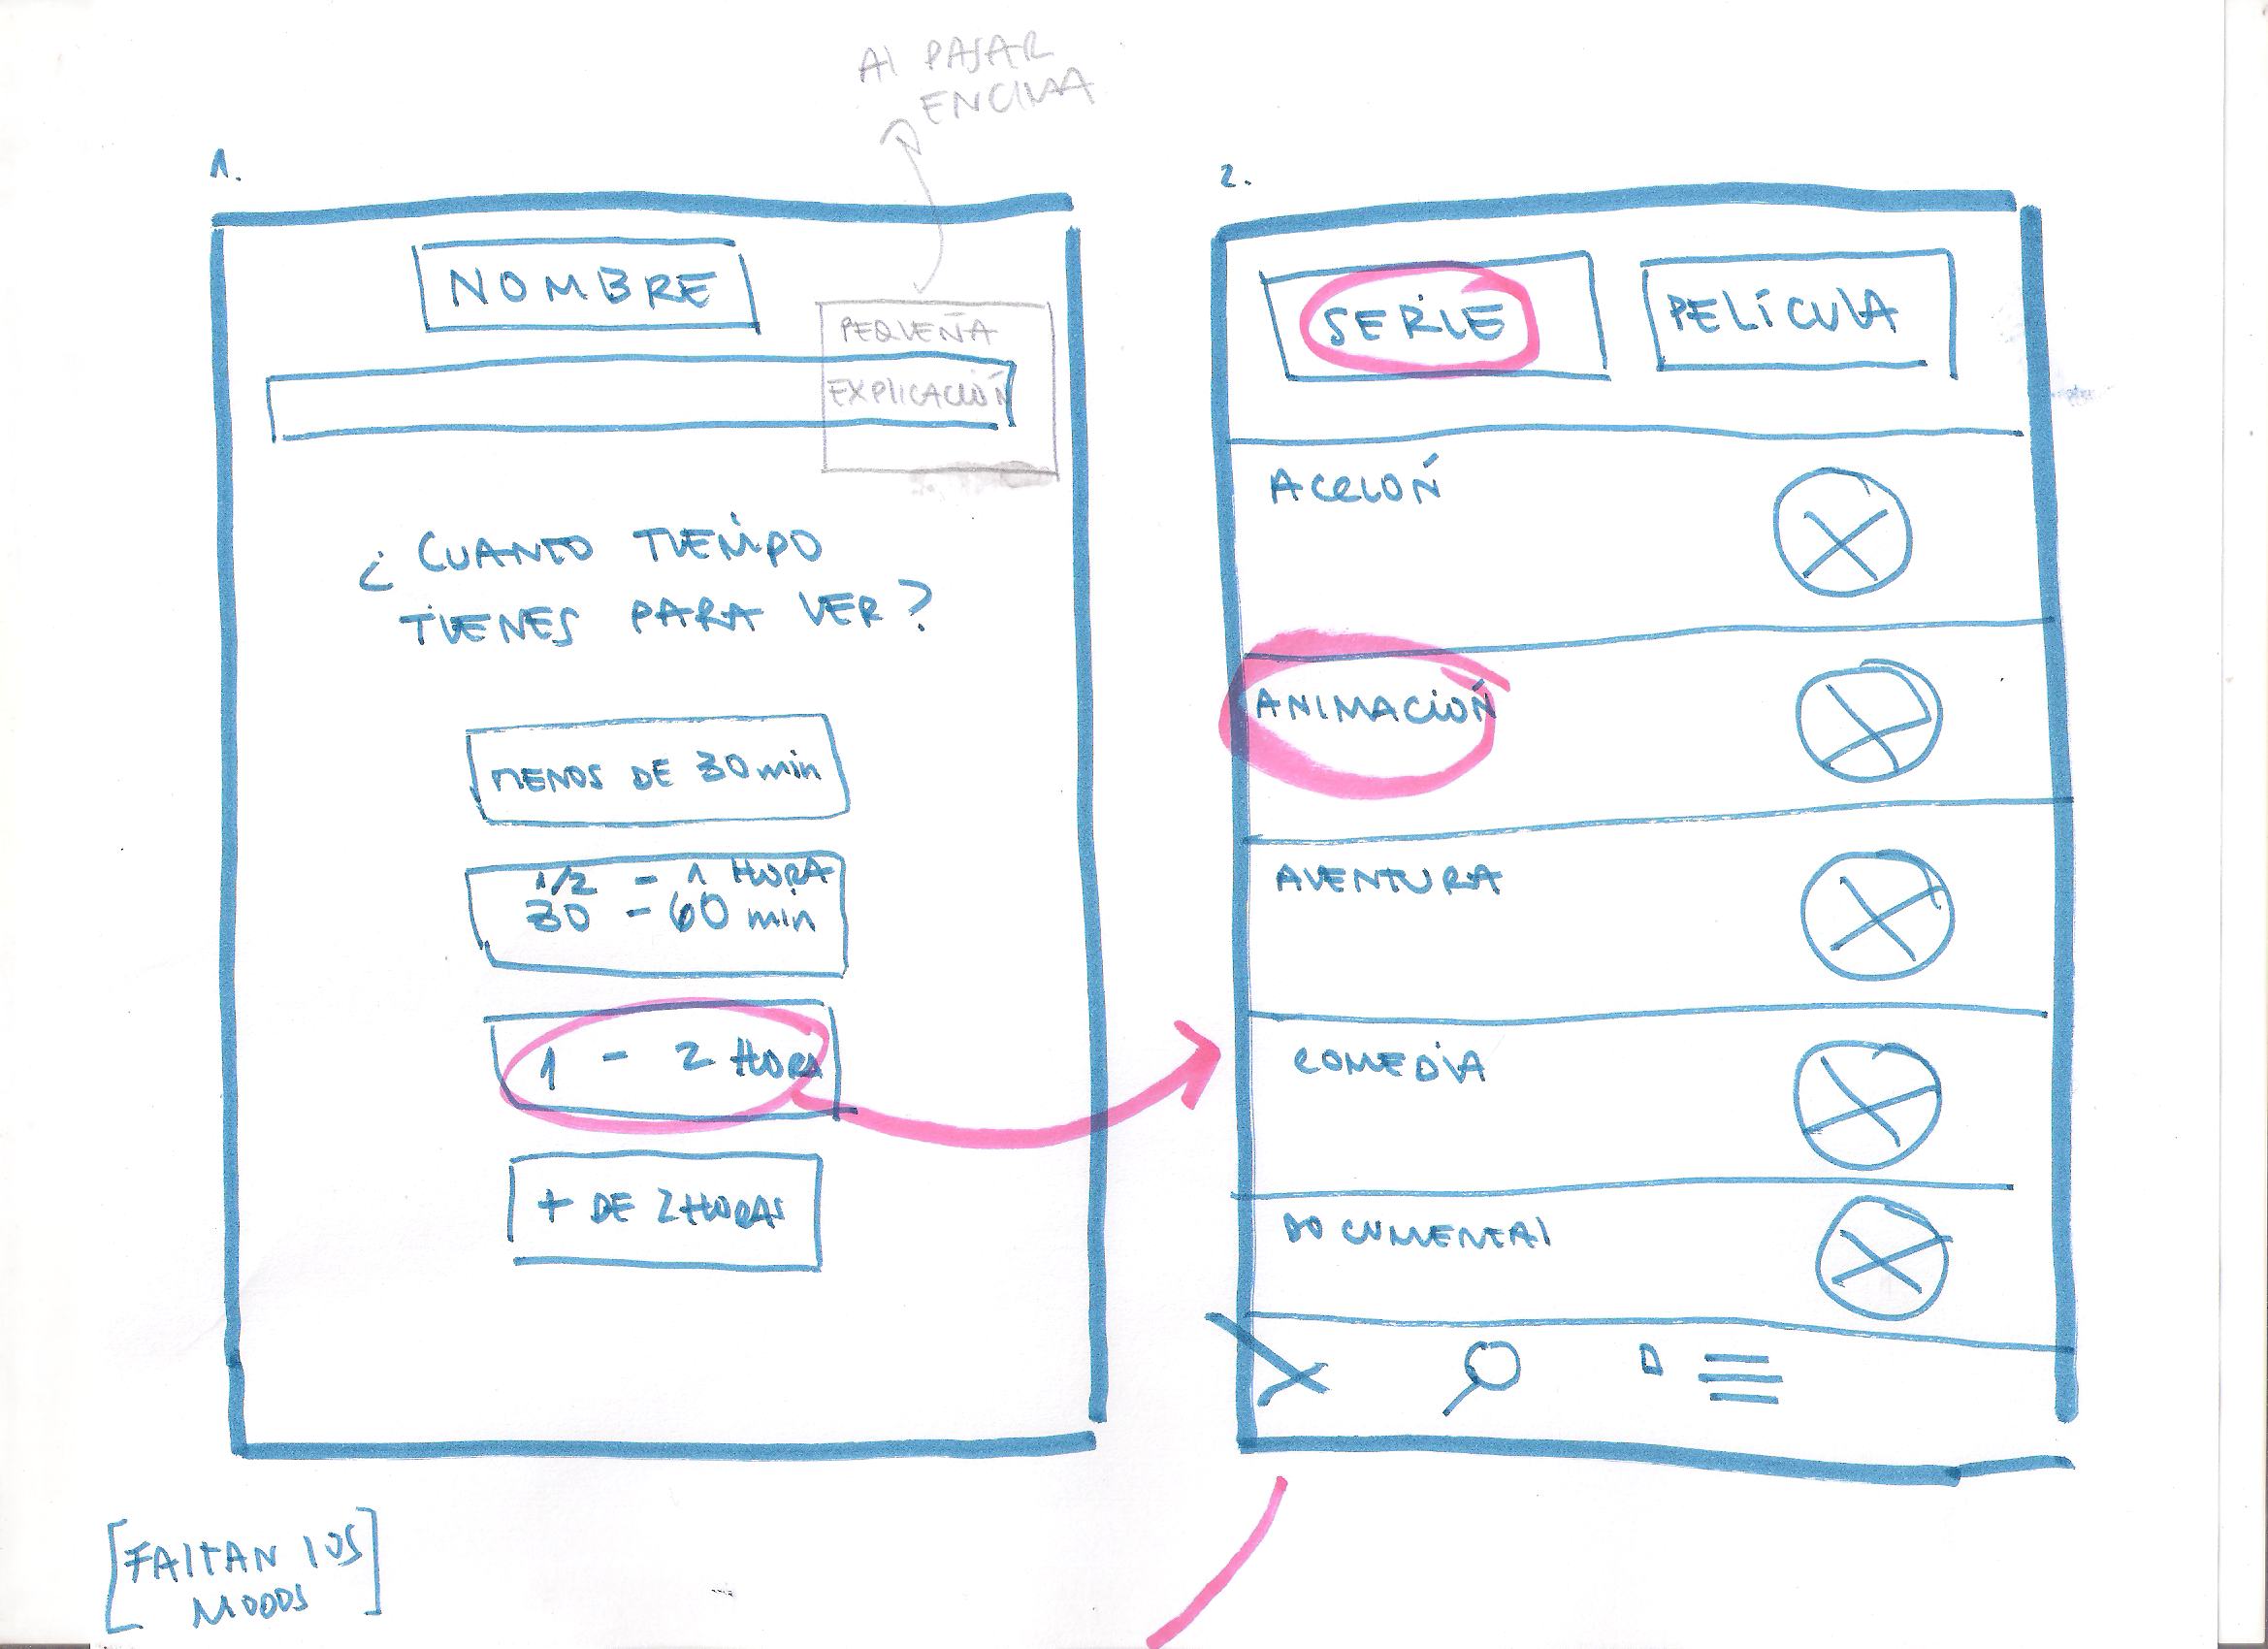 Al PASAR
ENCIMA
1.
NOMBRE
PEQUEÑA
EXPLICACIÓN
¿CUANTO TIEMPO
TIENES PARA VER?
MENOS DE 30 min
1/2 - 1 HORA
30 - 60 min
1 - 2 HORA
+ DE 2 HORAS
[FALTAN lOS
MOODS]
2.
SERIE
PELÍCULA
ACCIÓN
ANIMACIÓN
AVENTURA
COMEDIA
DOCUMENTAl